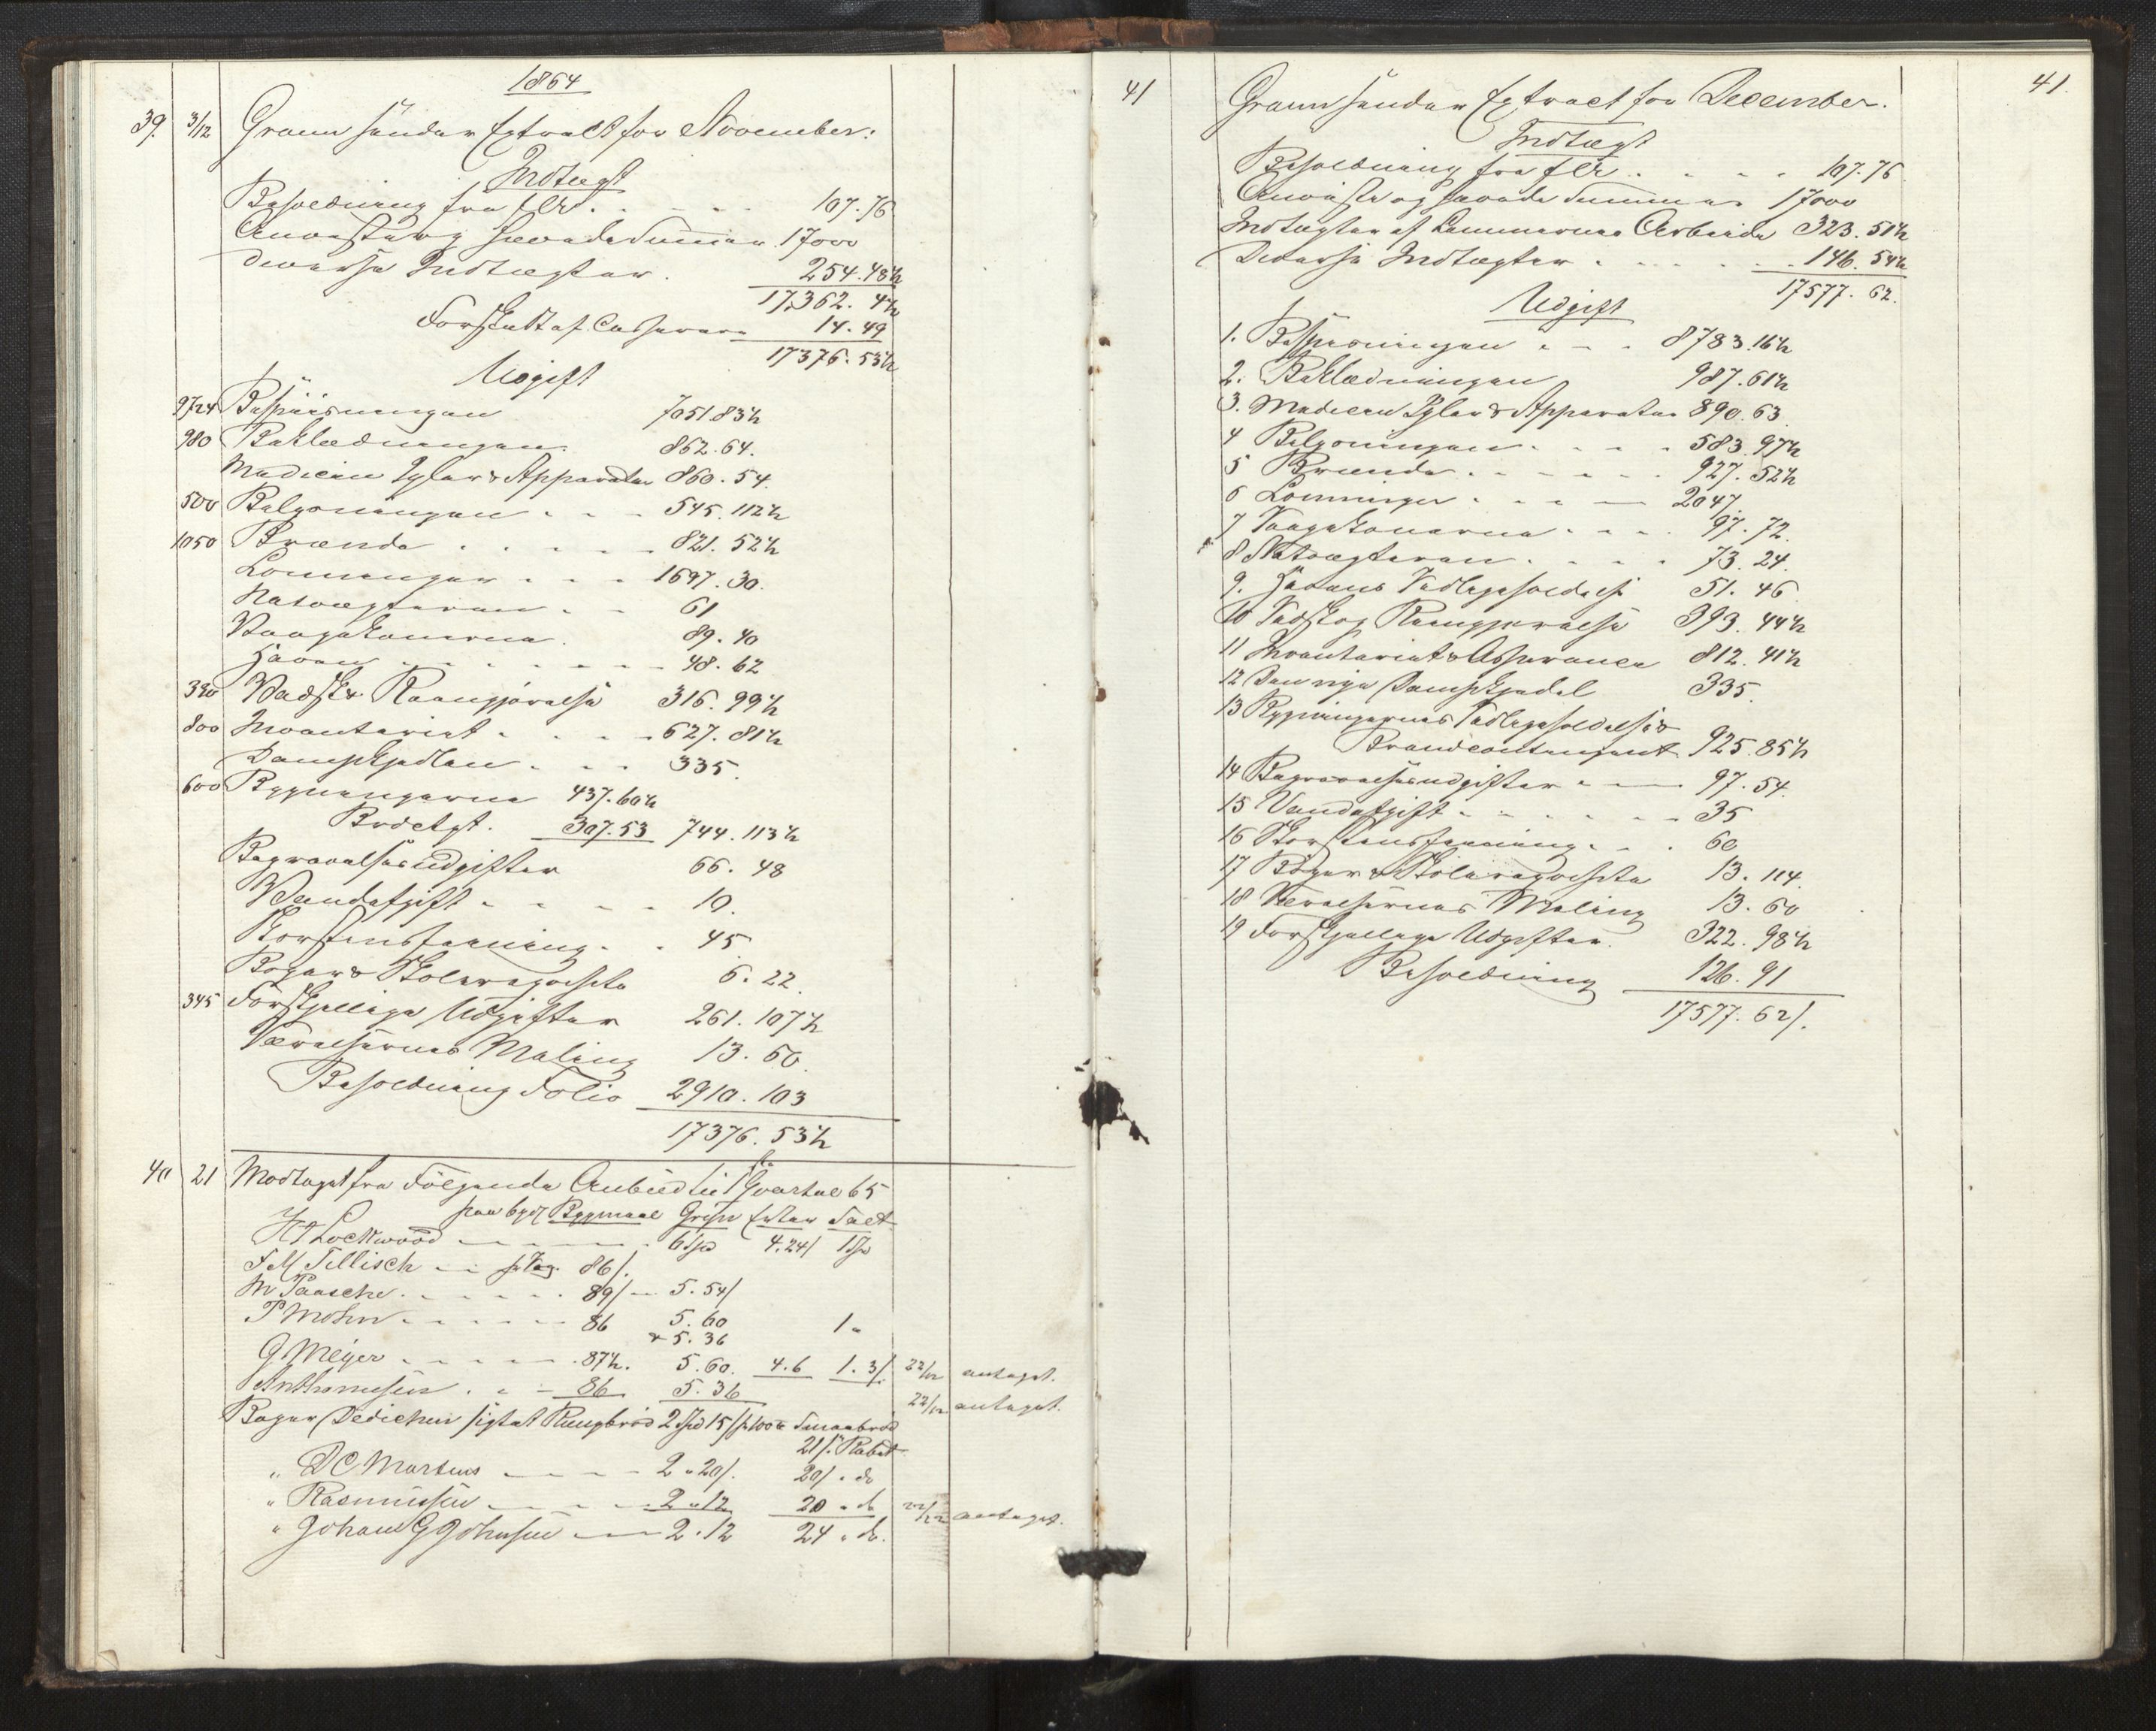 1864
39. 3/12 Grunn sendes Extract for November:
Indtægt
Besoldning fra flv. 107.76
Anvistning hævede Summer. 17000
Diverse Indtægter. 254.48½
17,362. 4½
Forskudt af Cassereren 14.49
17376.53½
Udgift
9724 Bespiisningen 7051.83½
980 Beklædningen 862.64.
Medicin Igler & Apparater 860.54.
500 Belysningen 545.112½
1050 Brænde 821.52½
Lønninger 1697.30.
Natvægteren 61
Vaagekonerne. 89.40
Haven 48.62
390 Vadsk & Reengjørelse 316.99½
800 Inventariet 627.81½
Dampkjedlen 335.
600 Bygningerne 437.60½
Brdctgt. 307.53 744.113½
Begravelsesudgifter 66.48
Vandafgift 10.
Skorstensfeining 45
Bøger & Skolereqvisita 6.22.
345 Forskjellige Udgifter 261.107½
Værelsernes Maling 13.60.
Besoldning Folio 2910.103
17376.53½
40 21 Modtaget fra Følgende Anbud til 1ste Qvartal 65
paa bygd Bygmeel Gryn Erter Salt
H Lockwood 6 Spd 4.24/ 1 Spd
F M Tillisch pr Vog. 86/.
M Paasche. 89/ 5.54/
P Mohn 86 5.60 1 "
& 5.36
G Meyer 87½. 5.60. 4.6 1.3/. 22/12 antaget.
Anthonisen. 86 5.36 22/12 antaget.
Bager Dedichen sigtet Rugbrød 2 Spd 15/ pr 100 ℔ Smaabrød
21/. Rabat
" D C Martens 2 " 20/. 20/ " do
" Rasmussen 2 " 12 20 " do 22/12 antaget.
" Johan G Johnsen 2 " 12 24 " do.
41 41.
Grunn sendes Extract for December.
Indtægt
Besoldning fra flv. 107.76
Anviste og hævede Summer 17000
Indtægter af Lemmernes Arbeide 323.51½
Diverse Indtægter 146.54½
17577.62.
Udgift
1. Bespiisningen 8783.16½
2. Beklædningen 987.61½
3. Medicin Igler & Apparater 890.63
4 Belysningen 583.97½
5 Brænde 927.52½
6 Lønninger 2047.
7 Vaagekonerne 97.72.
8 Natvægteren 73.24.
9. Havens Vedligeholdelse 51.46
10 Vadsk og Reengjørelse 393.44½
11 Inventariet & Assurance 812.41½
12 Den nye Dampkjedel 335.
13 Bygningernes Vedligeholdelse &
Brandcontingent 925.85½
14 Begravelsesudgifter 97.54.
15 Vandafgift 35
16 Skorstensfeining 60
17 Bøger & Skolereqvisita 13.114.
18 Værelsernes Maling 13.60
19 Forskjellige Udgifter. 322.98½
Besoldning 126.91
17577.62/.